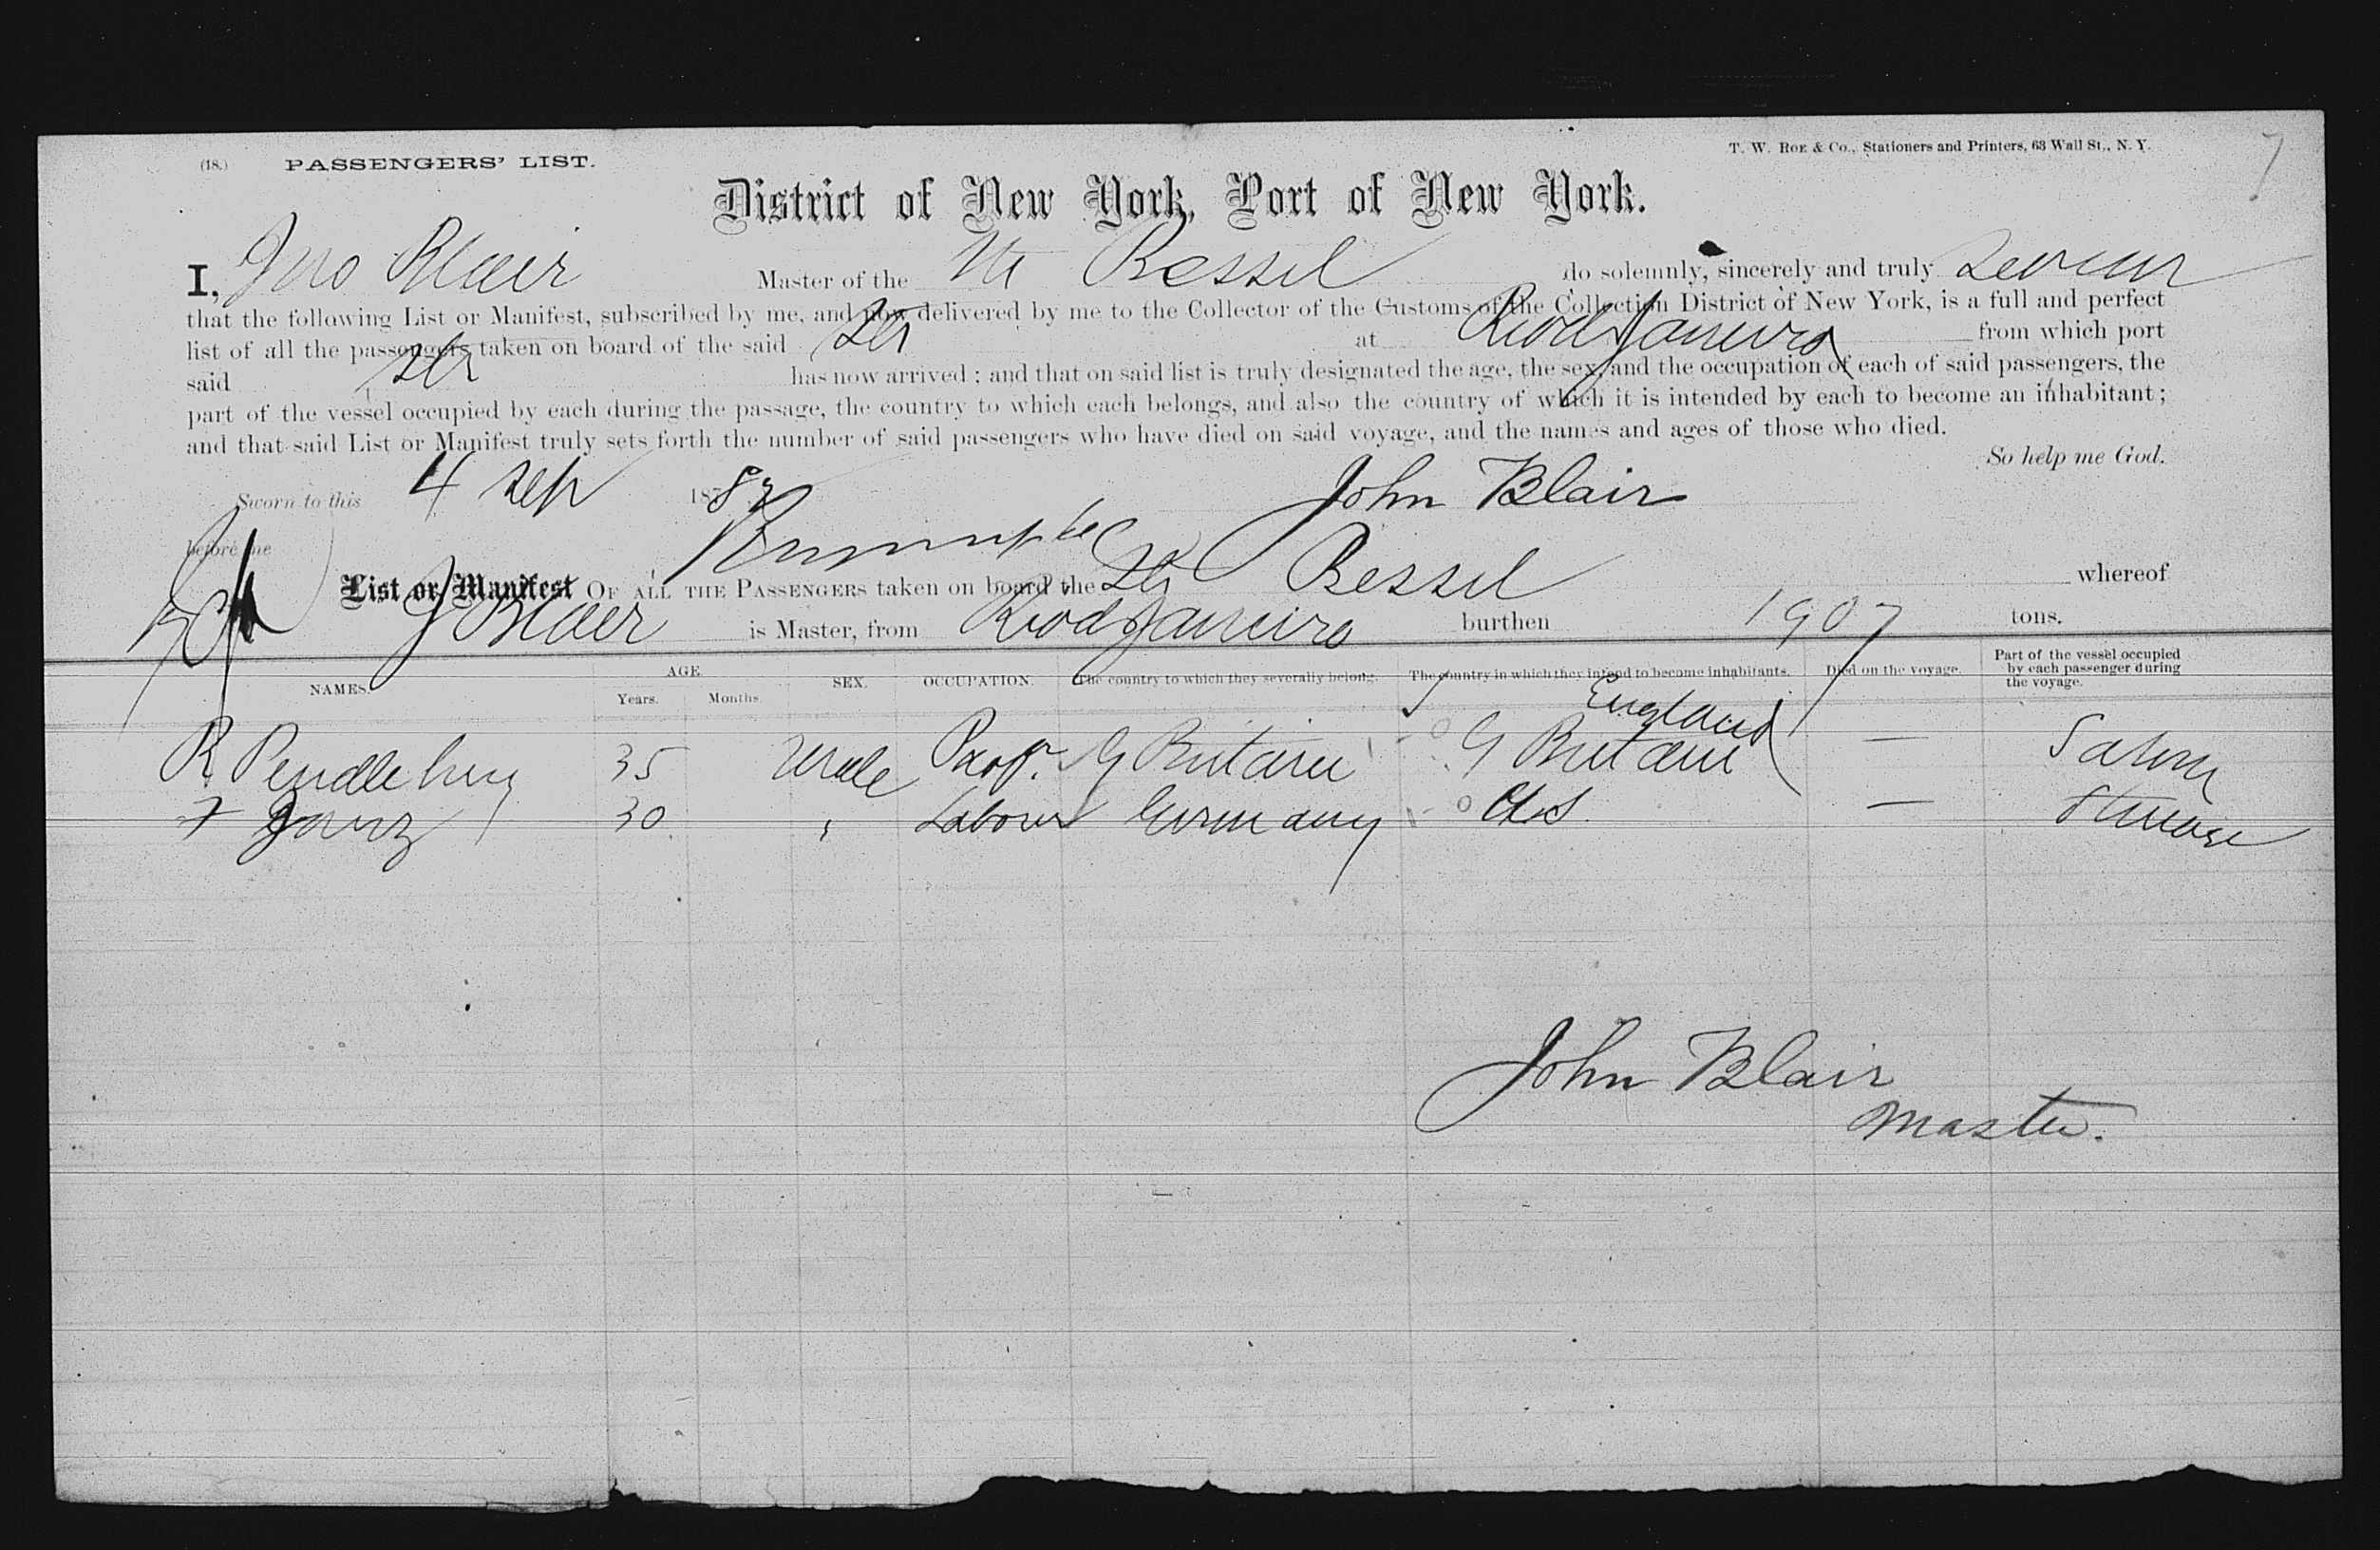 (18.) PASSENGERS' LIST.
T. W. ROE & CO., Stationers and Printers, 63 Wall St., N. Y.
7
District of New York, Port of New York.
I, Jno Blair Master of the Str Bessel do solemnly, sincerely and truly swear
that the following List or Manifest, subscribed by me, and now delivered by me to the Collector of the Customs of the Collection District of New York, is a full and perfect
list of all the passengers taken on board of the said Str at Rio de Janeiro from which port
said Str has now arrived; and that on said list is truly designated the age, the sex, and the occupation of each of said passengers, the
part of the vessel occupied by each during the passage, the country to which each belongs, and also the country of which it is intended by each to become an inhabitant;
and that said List or Manifest truly sets forth the number of said passengers who have died on said voyage, and the names and ages of those who died.
So help me God.
Sworn to this 4 Sep 188 John Blair
before me
List or Manifest OF ALL THE PASSENGERS taken on board the Str Bessel whereof
J Blair is Master, from Rio de Janeiro burthen 1907 tons.
NAMES. AGE. Years. Months. SEX. OCCUPATION. The country to which they severally belong. The country in which they intend to become inhabitants. Died on the voyage. Part of the vessel occupied by each passenger during the voyage.
England
R Pendlebury 35 Male Prof. G Britain G Britain — Saloon
30 " Labourer Germany U.S. — Steerage
John Blair
Master.